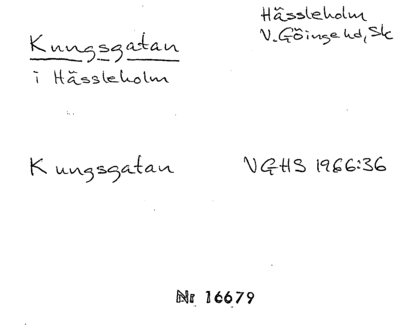 Hässleholm
V. Göinge hd, Sk
Kungsgatan
i Hässleholm
Kungsgatan VGHS 1966:36
Nr 16679